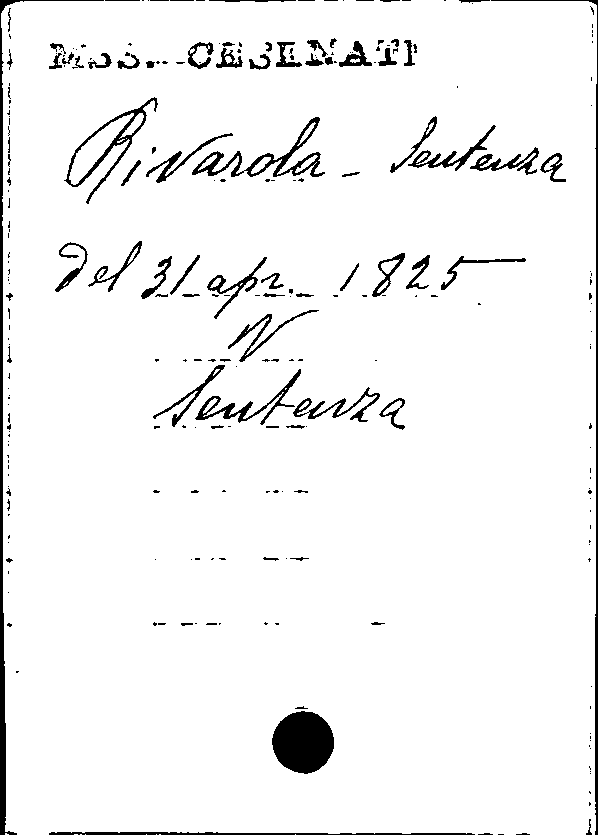 MSS. CESENATI
Rivarola - Sentenza
del 31 apr. 1825
V
Sentenza